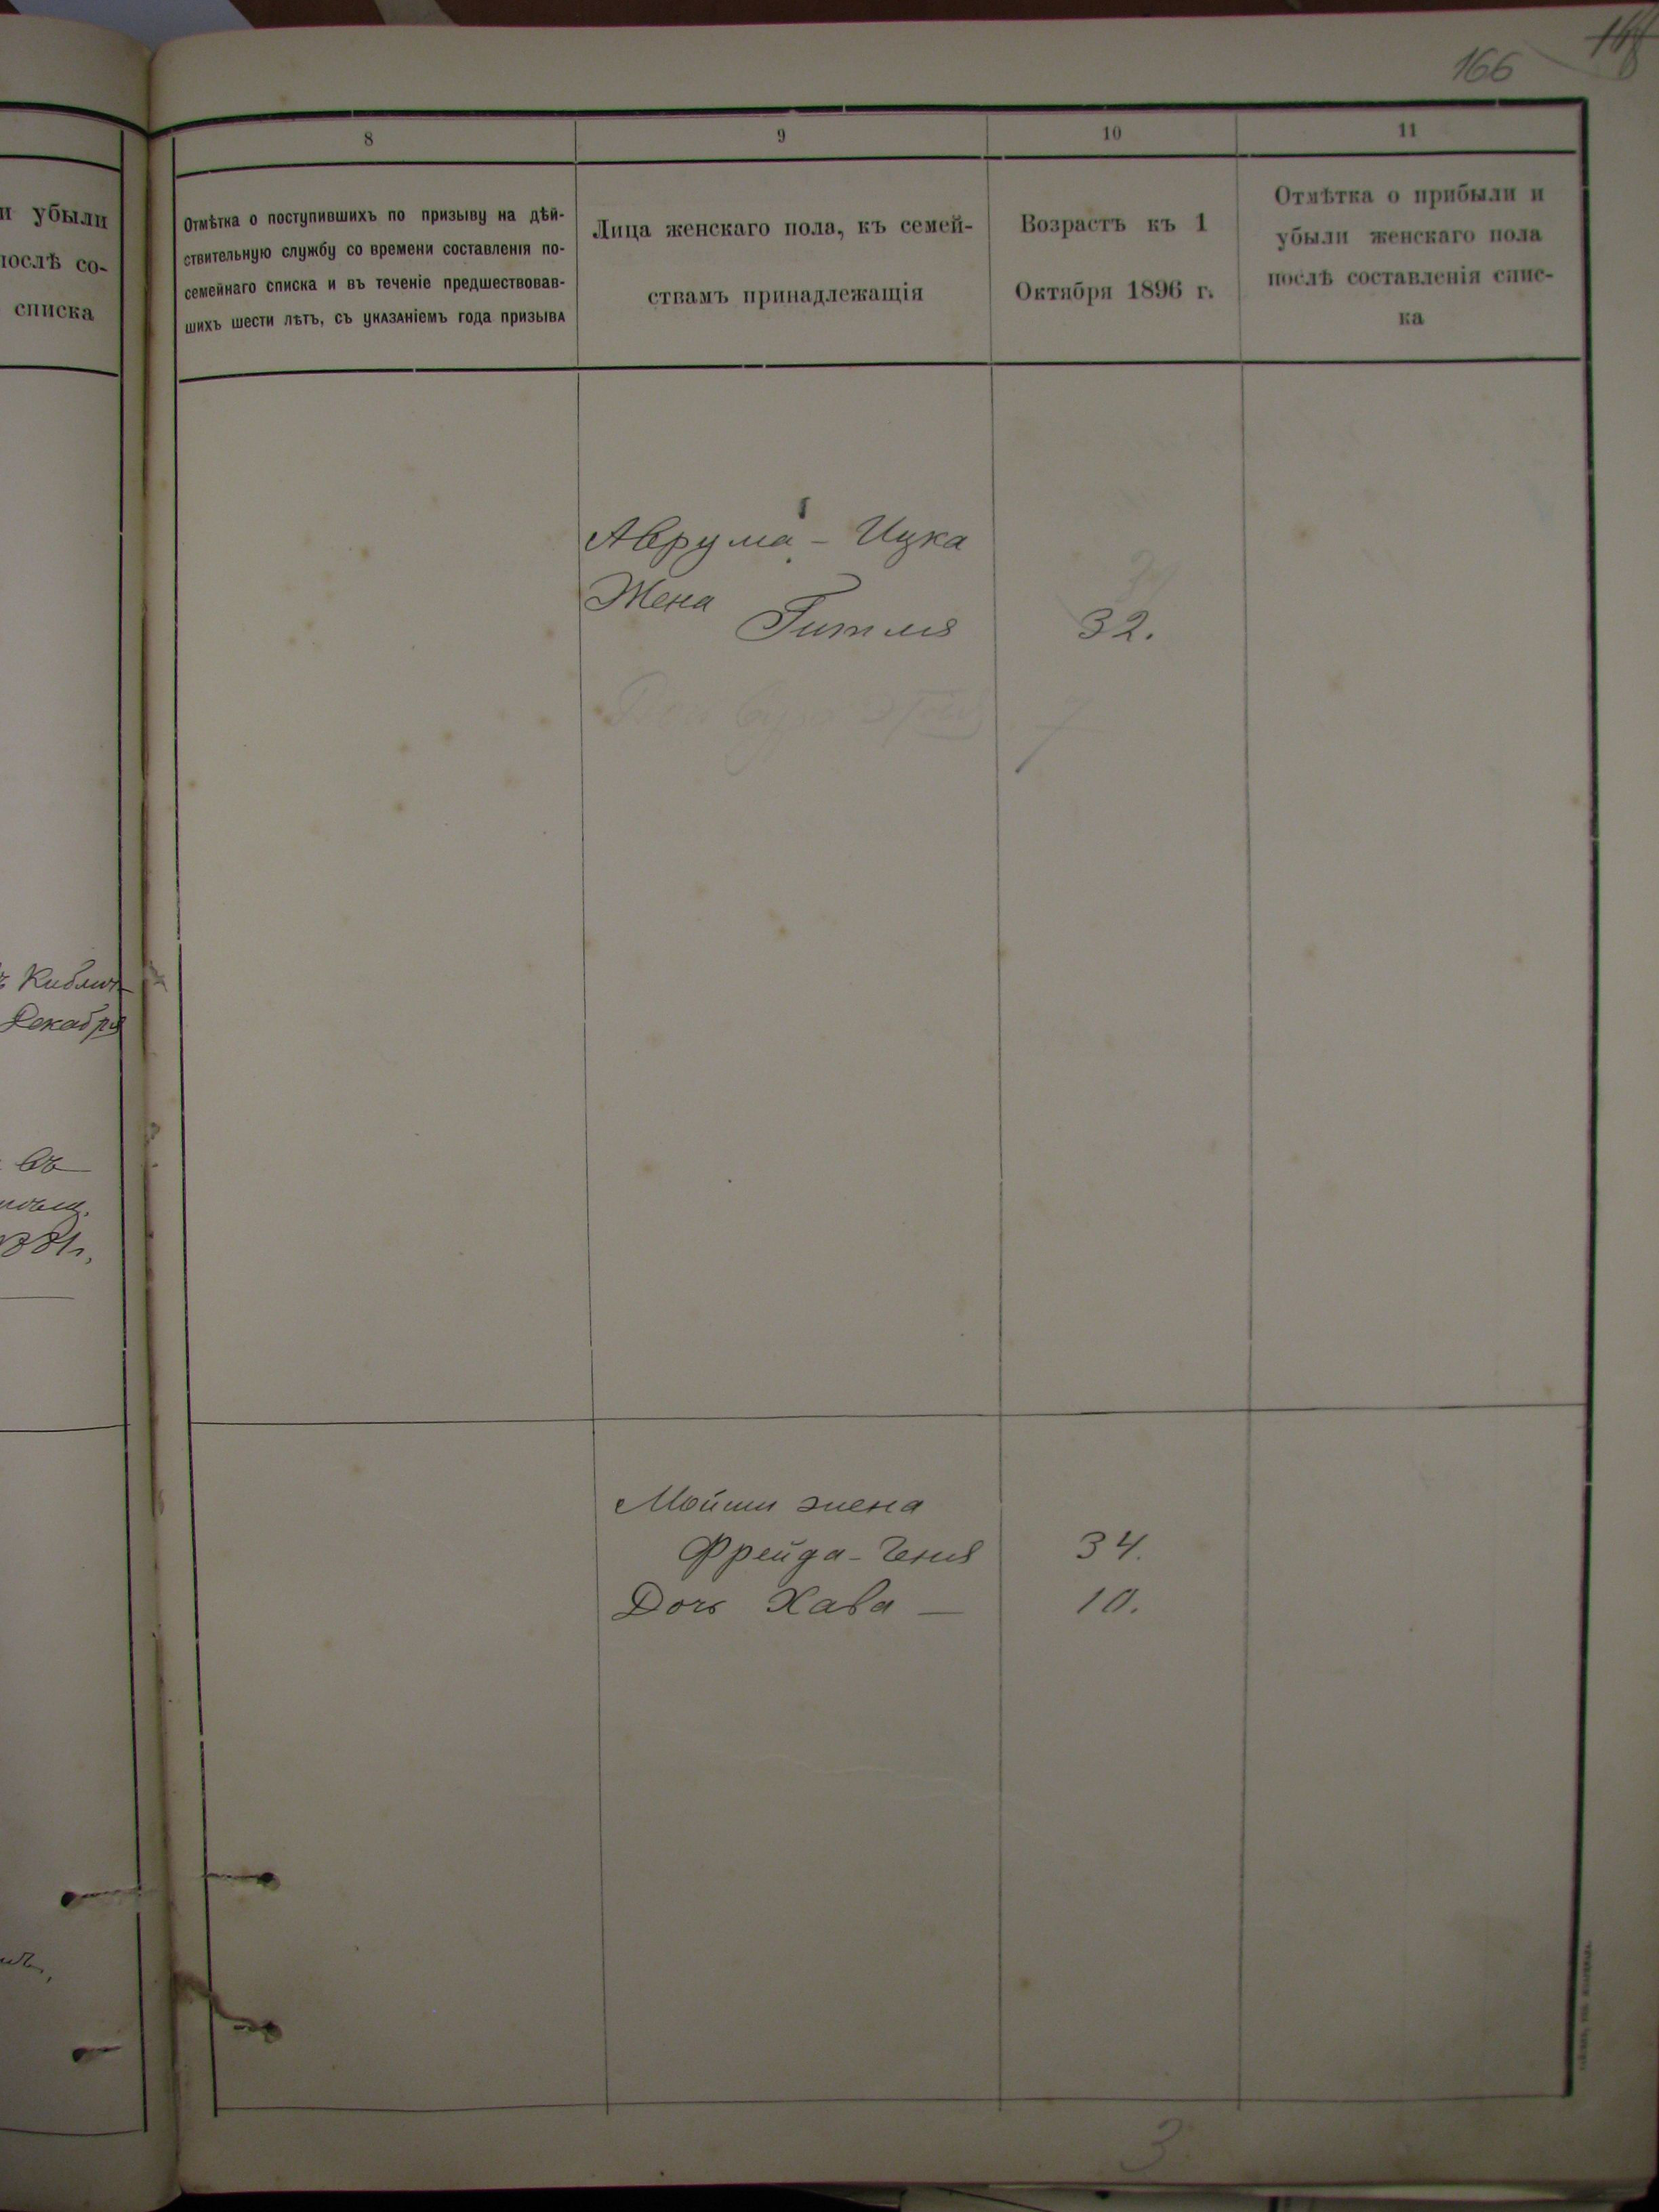 166
и убыли
послѣ со-
списка
Киблич
Декабря
въ
8
9
10
11
Отмѣтка о поступившихъ по призыву на дѣй-
ствительную службу со времени составленія по-
семейнаго списка и въ теченіе предшествовав-
шихъ шести лѣтъ, съ указаніемъ года призыва
Лица женскаго пола, къ семей-
ствамъ принадлежащія
Возрастъ къ 1
Октября 1896 г.
Отмѣтка о прибыли и
убыли женскаго пола
послѣ составленія спис-
ка
Аврума - Ицка
Жена
Гитля 32.
7
Мойши жена
Фрейда-Ченя 34.
Дочь Хава — 10.
3